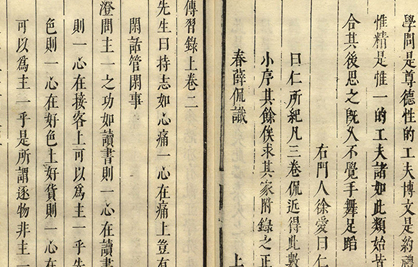 學問是尊德性的工夫博文是約禮
惟精是惟一的工夫諸如此類始皆
合其後思之既久不覺手舞足蹈
右門人徐愛曰仁
曰仁所紀凡三卷侃近得此數
小序其餘俟求其家附錄之正
春薛侃識
上
傳習錄上卷二
先生曰持志如心痛一心在痛上豈有
閑話管閑事
澄問主一之功如讀書則一心在讀書
則一心在接客上可以為主一乎先
色則一心在好色上好貨則一心在
可以為主一乎是所謂逐物非主一